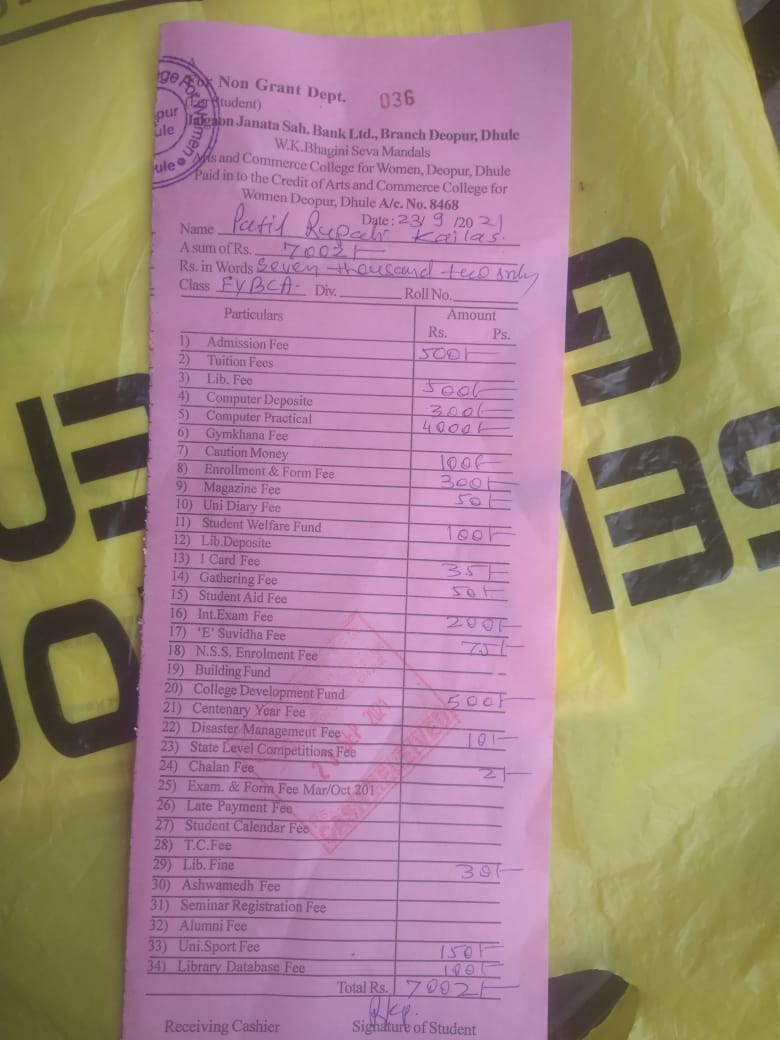 For Non Grant Dept. 036
(For Student)
Jalgaon Janata Sah. Bank Ltd., Branch Deopur, Dhule
W.K.Bhagini Seva Mandals
Arts and Commerce College for Women, Deopur, Dhule
Paid in to the Credit of Arts and Commerce College for
Women Deopur, Dhule A/c. No. 8468
Date : 23/9/2021
Name Patil Rupali Kailas.
A sum of Rs. 7002/-
Rs. in Words Seven thousand two only
Class FYBCA- Div. Roll No.
Particulars Amount
Rs. Ps.
1) Admission Fee 500/-
2) Tuition Fees
3) Lib. Fee 500/-
4) Computer Deposite 300/-
5) Computer Practical 4000/-
6) Gymkhana Fee
7) Caution Money 100/-
8) Enrollment & Form Fee 300/-
9) Magazine Fee 50/-
10) Uni Diary Fee
11) Student Welfare Fund 100/-
12) Lib.Deposite
13) I Card Fee 35/-
14) Gathering Fee 50/-
15) Student Aid Fee
16) Int.Exam Fee 200/-
17) 'E' Suvidha Fee 75/-
18) N.S.S. Enrolment Fee --
19) Building Fund
20) College Development Fund 500/-
21) Centenary Year Fee
22) Disaster Management Fee 10/-
23) State Level Competitions Fee
24) Chalan Fee 2/-
25) Exam. & Form Fee Mar/Oct 201
26) Late Payment Fee
27) Student Calendar Fee
28) T.C.Fee
29) Lib. Fine 30/-
30) Ashwamedh Fee
31) Seminar Registration Fee
32) Alumni Fee
33) Uni.Sport Fee 150/-
34) Library Database Fee 100/-
Total Rs. 7002/-
Receiving Cashier Signature of Student